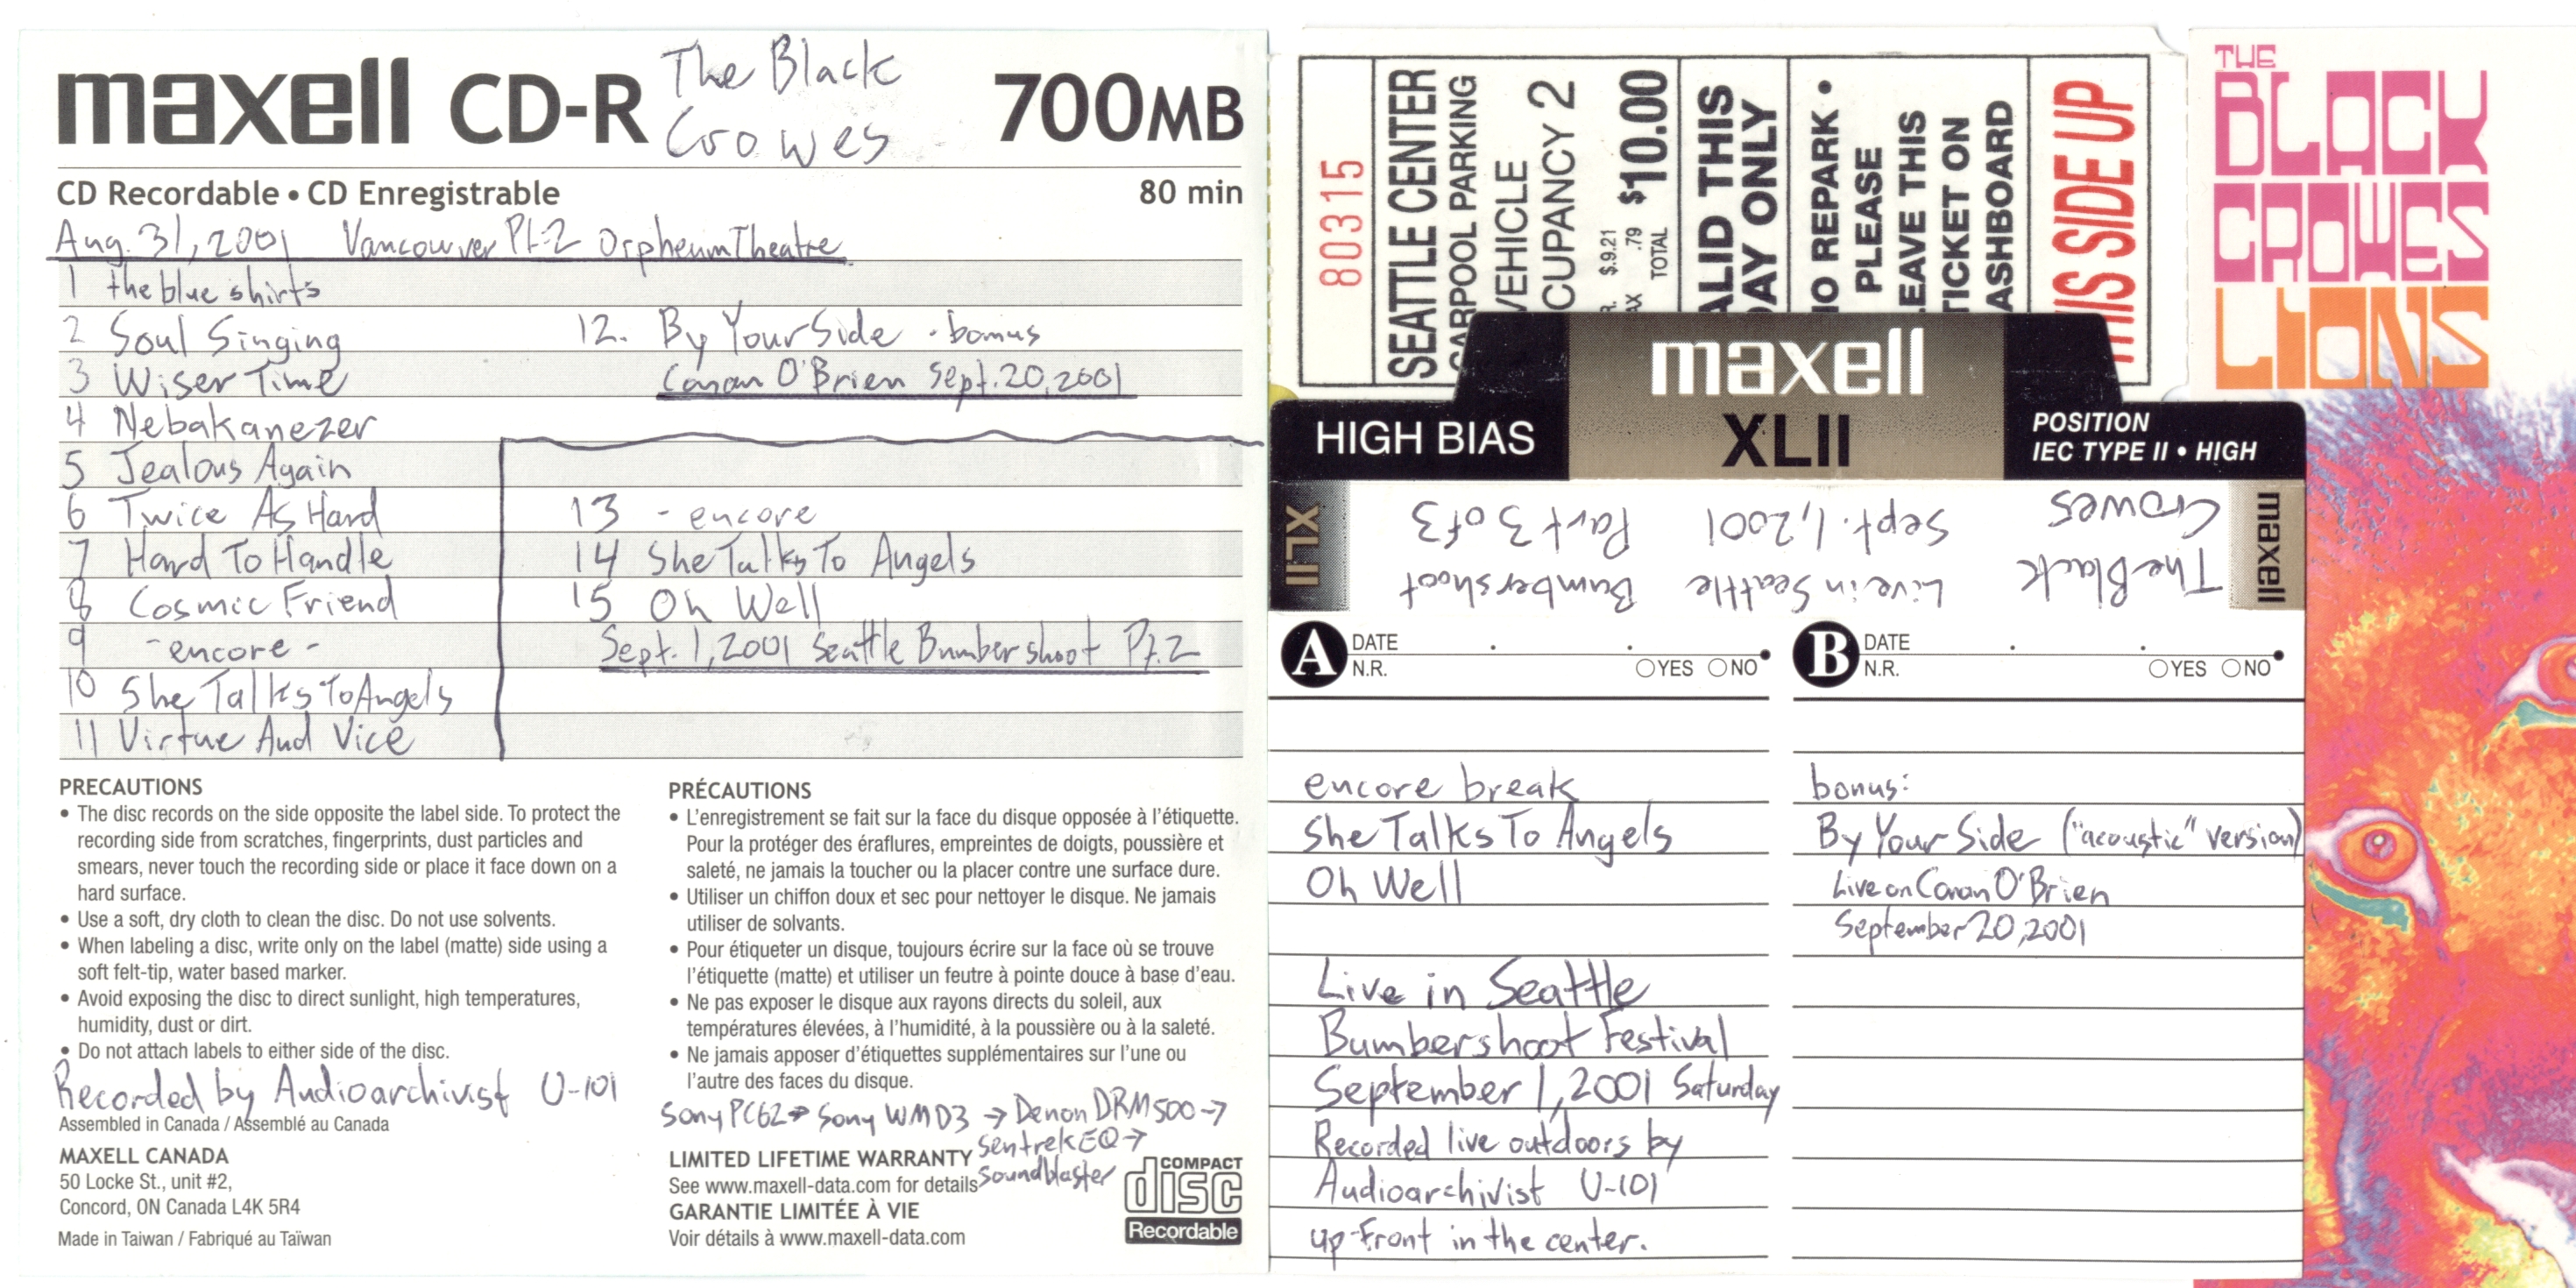 maxell CD-R The Black Crowes 700MB
CD Recordable • CD Enregistrable 80 min
Aug. 31, 2001 Vancouver Pt.2 Orpheum Theatre
1 the blue shirts
2 Soul Singing
3 Wiser Time
4 Nebakanezer
5 Jealous Again
6 Twice As Hard
7 Hard To Handle
8 Cosmic Friend
9 -encore-
10 She Talks To Angels
11 Virtue And Vice
12. By Your Side - bonus
Conan O'Brien Sept. 20, 2001
13 - encore
14 She Talks To Angels
15 Oh Well
Sept. 1, 2001 Seattle Bumbershoot Pt.2
PRECAUTIONS
• The disc records on the side opposite the label side. To protect the
recording side from scratches, fingerprints, dust particles and
smears, never touch the recording side or place it face down on a
hard surface.
• Use a soft, dry cloth to clean the disc. Do not use solvents.
• When labeling a disc, write only on the label (matte) side using a
soft felt-tip, water based marker.
• Avoid exposing the disc to direct sunlight, high temperatures,
humidity, dust or dirt.
• Do not attach labels to either side of the disc.
Recorded by Audioarchivist U-101
Assembled in Canada / Assemblé au Canada
MAXELL CANADA
50 Locke St., unit #2,
Concord, ON Canada L4K 5R4
Made in Taiwan / Fabriqué au Taïwan
PRÉCAUTIONS
• L'enregistrement se fait sur la face du disque opposée à l'étiquette.
Pour la protéger des éraflures, empreintes de doigts, poussière et
saleté, ne jamais la toucher ou la placer contre une surface dure.
• Utiliser un chiffon doux et sec pour nettoyer le disque. Ne jamais
utiliser de solvants.
• Pour étiqueter un disque, toujours écrire sur la face où se trouve
l'étiquette (matte) et utiliser un feutre à pointe douce à base d'eau.
• Ne pas exposer le disque aux rayons directs du soleil, aux
températures élevées, à l'humidité, à la poussière ou à la saleté.
• Ne jamais apposer d'étiquettes supplémentaires sur l'une ou
l'autre des faces du disque.
Sony PC62 → Sony WMD3 → Denon DRM500 →
Sentrek EQ →
Soundblaster
LIMITED LIFETIME WARRANTY
See www.maxell-data.com for details
GARANTIE LIMITÉE À VIE
Voir détails à www.maxell-data.com
COMPACT
disc
Recordable
80315
SEATTLE CENTER
CARPOOL PARKING
VEHICLE
CUPANCY 2
R. $.9.21
AX .79
TOTAL $10.00
ALID THIS
DAY ONLY
NO REPARK •
PLEASE
LEAVE THIS
TICKET ON
ASHBOARD
THIS SIDE UP
THE
BLACK
CROWES
LIONS
maxell
HIGH BIAS XLII
POSITION
IEC TYPE II • HIGH
XLII
maxell
The Black Crowes
Live in Seattle Sept. 1, 2001
Bumbershoot Part 3 of 3
A DATE
N.R. YES NO
encore break
She Talks To Angels
Oh Well
Live in Seattle
Bumbershoot Festival
September 1, 2001 Saturday
Recorded live outdoors by
Audioarchivist U-101
up-front in the center.
B DATE
N.R. YES NO
bonus:
By Your Side ("acoustic" version)
Live on Conan O'Brien
September 20, 2001